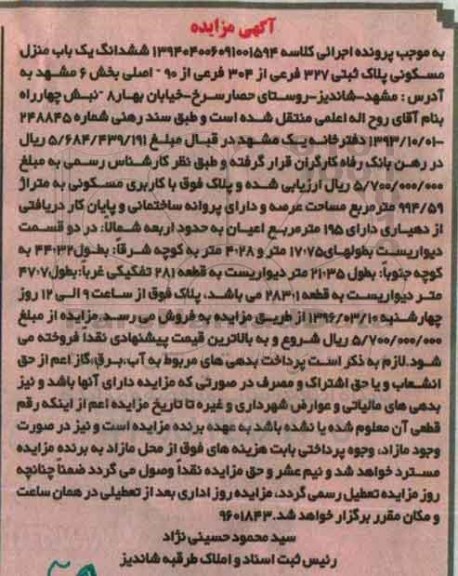 آگهی مزایده
به موجب پرونده اجرائی کلاسه ۱۳۹۴۰۴۰۰۶۰۹۱۰۰۱۵۹۴ ششدانگ یک باب منزل
مسکونی پلاک ثبتی ۳۲۷ فرعی از ۳۰۴ فرعی از ۹۰ - اصلی بخش ۶ مشهد به
آدرس : مشهد-شاندیز-روستای حصارسرخ-خیابان بهار۸ -نبش چهارراه
بنام آقای روح اله اعلمی منتقل شده است و طبق سند رهنی شماره ۲۴۸۸۴۵
-۱۳۹۳/۱۰/۰۱ دفترخانه یک مشهد در قبال مبلغ ۵/۶۸۴/۴۳۹/۱۹۱ ریال
در رهن بانک رفاه کارگران قرار گرفته و طبق نظر کارشناس رسمی به مبلغ
۵/۷۰۰/۰۰۰/۰۰۰ ریال ارزیابی شده و پلاک فوق با کاربری مسکونی به متراژ
۹۹۴/۵۹ مترمربع مساحت عرصه و دارای پروانه ساختمانی و پایان کار دریافتی
از دهیاری دارای ۱۹۵ مترمربع اعیان به حدود اربعه شمالا: در دو قسمت
دیواریست بطولهای۱۷۰۷۵ متر و ۴۰۲۸ متر به کوچه شرقاً: بطول۴۴۰۳۲ به
کوچه جنوباً: بطول ۲۱۰۳۵ متر دیواریست به قطعه ۲۸۱ تفکیکی غرباً:بطول۴۷۰۷
متر دیواریست به قطعه ۲۸۳۰۱ می باشد، پلاک فوق از ساعت ۹ الی ۱۲ روز
چهارشنبه ۱۳۹۶/۰۳/۱۰ از طریق مزایده به فروش می رسد.مزایده از مبلغ
۵/۷۰۰/۰۰۰/۰۰۰ ریال شروع و به بالاترین قیمت پیشنهادی نقدا فروخته می
شود.لازم به ذکر است پرداخت بدهی های مربوط به آب،برق،گاز اعم از حق
انشعاب و یا حق اشتراک و مصرف در صورتی که مزایده دارای آنها باشد و نیز
بدهی های مالیاتی و عوارض شهرداری و غیره تا تاریخ مزایده اعم از اینکه رقم
قطعی آن معلوم شده یا نشده باشد به عهده برنده مزایده است و نیز در صورت
وجود مازاد، وجوه پرداختی بابت هزینه های فوق از محل مازاد به برنده مزایده
مسترد خواهد شد و نیم عشر و حق مزایده نقداً وصول می گردد ضمناً چنانچه
روز مزایده تعطیل رسمی گردد، مزایده روز اداری بعد از تعطیلی در همان ساعت
و مکان مقرر برگزار خواهد شد.۹۶۰۱۸۴۳
سید محمود حسینی نژاد
رئیس ثبت اسناد و املاک طرقبه شاندیز